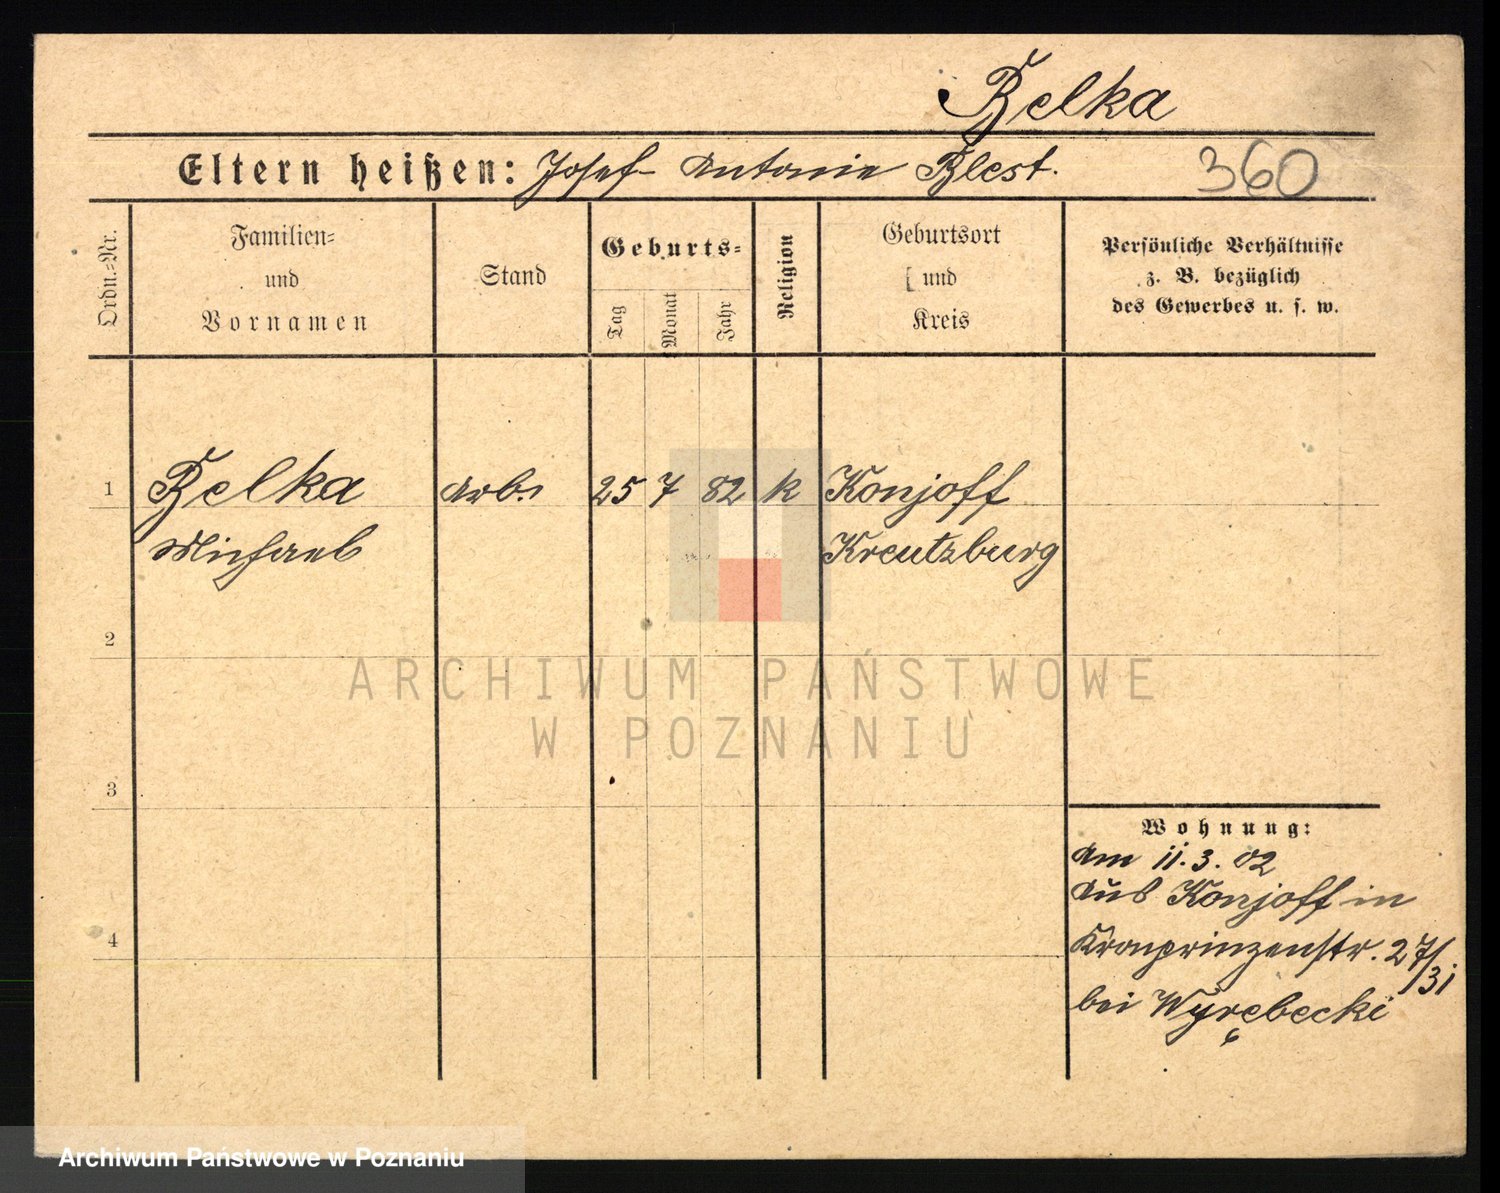 Belka
Eltern heißen: Josef Antonie Blest.
360
Ordn.-Nr.
Familien-
und
Vornamen
Stand
Geburts-
Tag
Monat
Jahr
Religion
Geburtsort
und
Kreis
Persönliche Verhältnisse
z. B. bezüglich
des Gewerbes u. s. w.
1 Belka Arb. 25 7 82 k Konjoff
Michael Kreutzburg
2
3
4
Wohnung:
Am 11.3.02
Aus Konjoff in
Kronprinzenstr. 27/31
bei Wyrębecki
ARCHIWUM PAŃSTWOWE
W POZNANIU
Archiwum Państwowe w Poznaniu